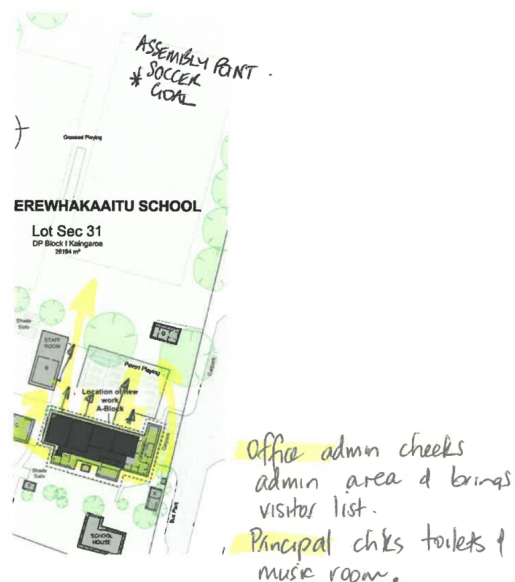 ASSEMBLY POINT.
* SOCCER
GOAL
Grassed Playing
EREWHAKAAITU SCHOOL
Lot Sec 31
DP Block I Kaingaroa
26194 m²
Shade
Sails
STAFF
ROOM
Paved Playing
Location of new
work
A-Block
Shade
Sails
Bus Park
SCHOOL
HOUSE
Office admin checks
admin area & brings
visitor list.
Principal chks toilets &
music room.